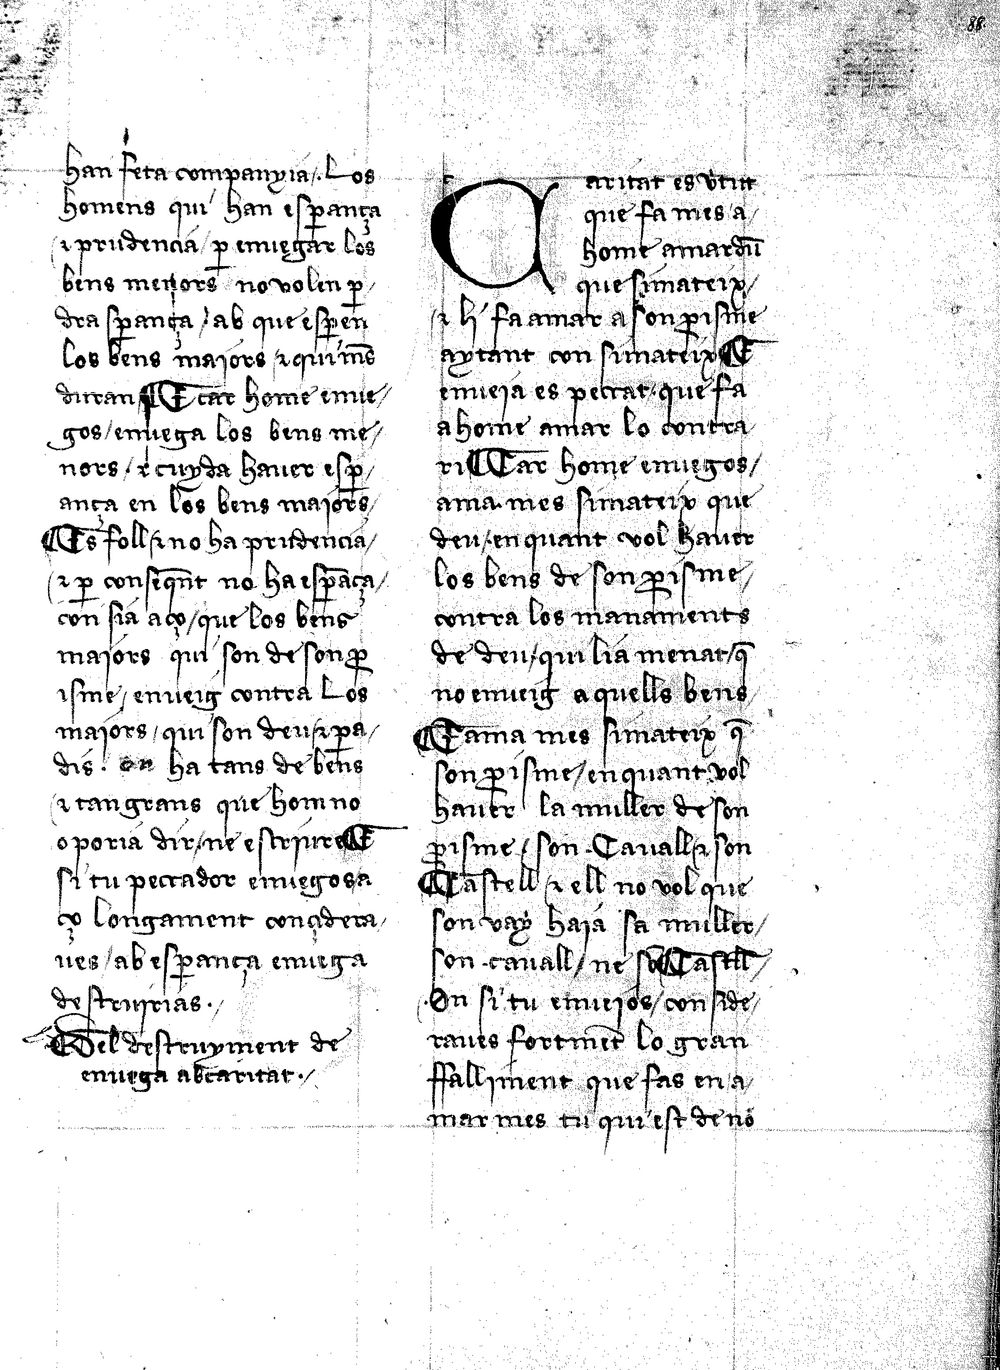 88
han feta companyia / . Los
homens qui han esperança
⁊ prudencia / per enuegar los
bens menors no volen per /
dra sperança / ab que esperen
los bens maiors ⁊ qui mes
duran ¶ E car home enue /
gos / enuega los bens me /
nors / e cuyda hauer esper /
ança en los bens maiors /
¶ Es foll / ⁊ no ha prudencia /
⁊ per conseqnt no ha esperãça /
con sia aço / que los bens
maiors qui son de son pro
isme / enueig contra Los
maiors / qui son deu / ⁊ pa /
dis . on ha tans de bens
⁊ tan grans que hom no
o poria dir / ne escriure ¶ E
si tu peccador enuegos a
ço longament considera /
ues / ab esperança enuega
destruirias . /
¶ Del destruyment de
enuega ab caritat . /
Caritat es vtut
que fa mes a /
home amar dũ
que simateix /
⁊ li fa amar a son proisme
aytant con simateix ¶ E
enueia es peccat . que fa
a home amar lo contra
ri ¶ Car home enuegos /
ama mes simateix que
deu / en quant vol hauer
los bens de son proisme /
contra los manaments
de deu / qui lia menat / q̃
no enueig aquells bens /
¶ E ama mes simateix q̃
son proisme / en quant vol
hauer la muller de son
proisme / son Cauall / ⁊ son
Castell / ⁊ ell no vol que
son vay haia sa muller /
son cauall / ne sõ Castell /
On si tu enueios / conside /
raues fortmẽt lo gran
ffalliment que fas en a /
mar mes tu qui est de nõ